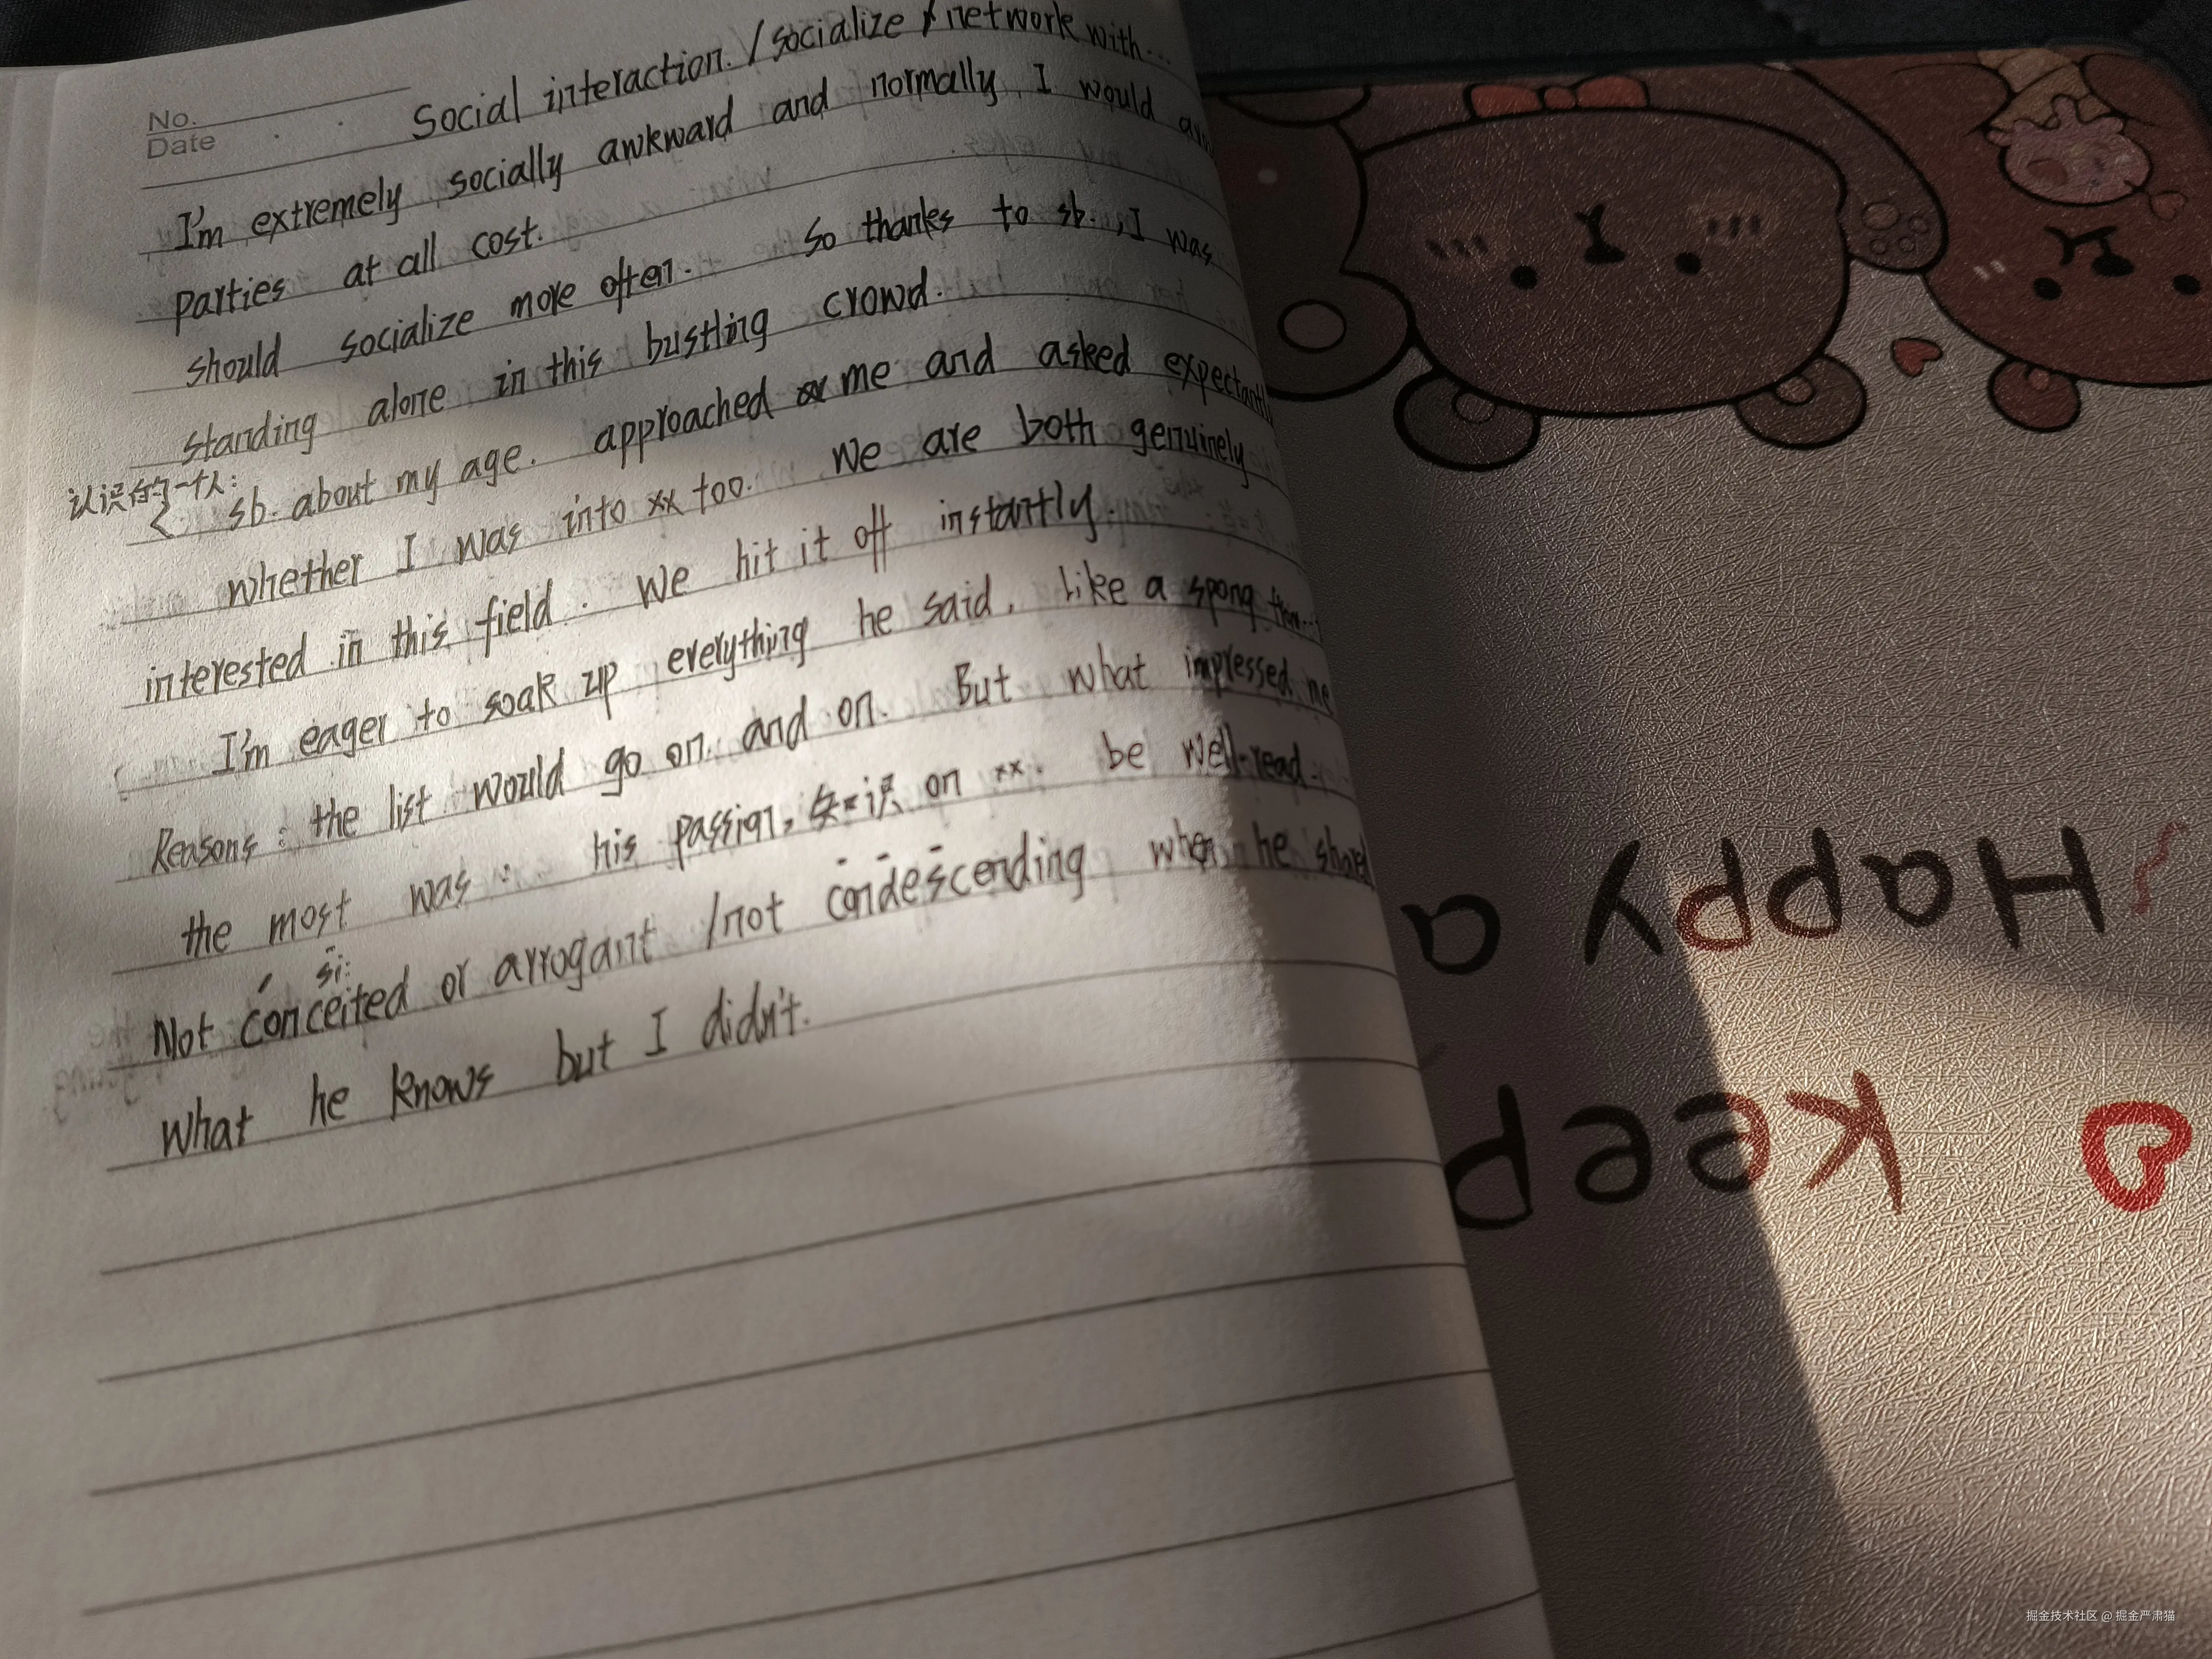 No.
Date
Social interaction. / socialize / network with...
I'm extremely socially awkward and normally, I would
parties at all cost.
should socialize more often. So thanks to sb., I was
standing alone in this bustling crowd.
认识的一个人:
sb. about my age. approached me and asked expectantly
whether I was into xx too. We are both genuinely
interested in this field. We hit it off instantly.
I'm eager to soak up everything he said. like a spong
Reasons: the list would go on and on. But what impressed me
the most was: his passion, 知识 on xx. be well-read.
si:
Not conceited or arrogant /not condescending when he shared
what he knows but I didn't.
Happy a
Keep
掘金技术社区 @ 掘金严肃猫